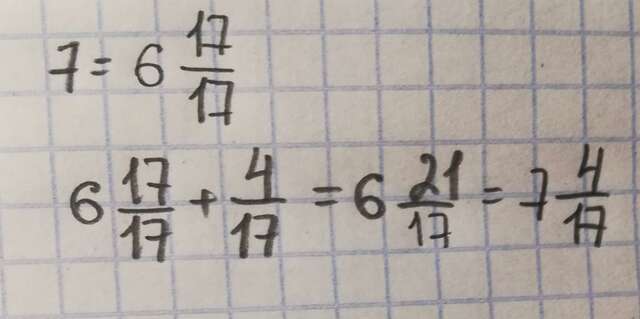 7 = 6 17/17
6 17/17 + 4/17 = 6 21/17 = 7 4/17